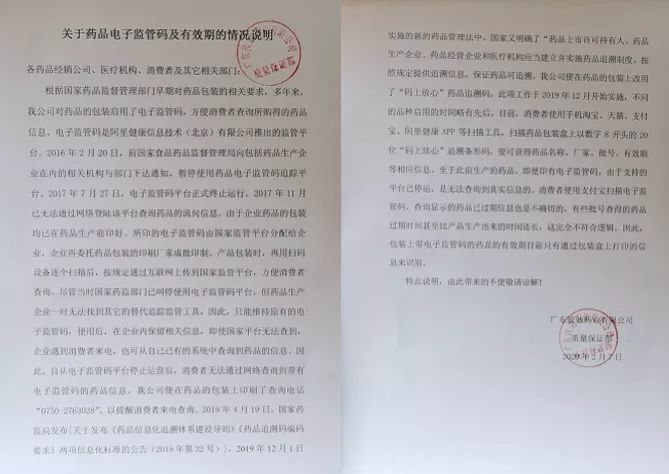 关于药品电子监管码及有效期的情况说明
各药品经销公司、医疗机构、消费者及其它相关部门：
根据国家药品监督管理部门早期对药品包装的相关要求，多年来，
我公司对药品的包装启用了电子监管码，方便消费者查询所购得的药品
信息。电子监管码是阿里健康信息技术（北京）有限公司推出的监管平
台。2016年2月20日，前国家食品药品监督管理局向包括药品生产企
业在内的相关机构与部门下达通知，暂停使用药品电子监管码追踪平
台。2017年7月27日，电子监管码平台正式终止运行。2017年11月
已无法通过网络登陆该平台查询药品的流向信息。由于企业药品的包装
均已在药品生产前印好、所印的电子监管码由国家监管平台分配给企
业，企业再委托药品包装的印刷厂家成批印制。产品包装时，再用扫码
设备逐个扫描后，按规定通过互联网上传到国家监管平台，方便消费者
查询。尽管当时国家药监部门已叫停使用电子监管码平台，但药品生产
企业一时无法找到其它的替代追踪监管工具。因此，只能维持原有的电
子监管码，使用后，在企业内保留相关信息，即使国家平台无法查到，
企业遇到消费者来电，也可从自己已有的系统中查询到药品的信息。因
此，自从电子监管码平台停止运营后，消费者无法通过网络查询到带有
电子监管码的药品信息，我公司便在药品的包装上印刷了查询电话
“0750-2763028”，以提醒消费者来电查询。2019年4月19日，国家药
监局发布[关于发布《药品信息化追溯体系建设导则》《药品追溯码编码
要求》两项信息化标准的公告（2019年第32号）]，2019年12月1日
实施的新的药品管理法中，国家又明确了“药品上市许可持有人、药品
生产企业、药品经营企业和医疗机构应当建立并实施药品追溯制度，按
照规定提供追溯信息，保证药品可追溯。我公司便在药品的包装上改用
了“码上放心”药品追溯码。此项工作于2019年12月开始实施，不同
的品种启用的时间略有先后。目前，消费者使用手机淘宝、天猫、支付
宝、阿里健康APP等扫描工具，扫描药品包装盒上以数字8开头的20
位“码上放心”追溯条形码，便可获得药品名称、厂家、批号、有效期
等相应信息。至于此前生产的药品，即使印有电子监管码，由于支持的
平台已停运，是无法查询到真实信息的。消费者使用支付宝扫描电子监
管码，查询显示的药品已过期信息也是不确切的，有些批号查得的药品
过期时间甚至比产品生产出来的时间还长，这完全不符合逻辑。因此，
包装上带电子监管码的药品的有效期目前只有通过包装盒上打印的信
息来识别。
特此说明，由此带来的不便敬请谅解！
质量保证部
2020年2月7日